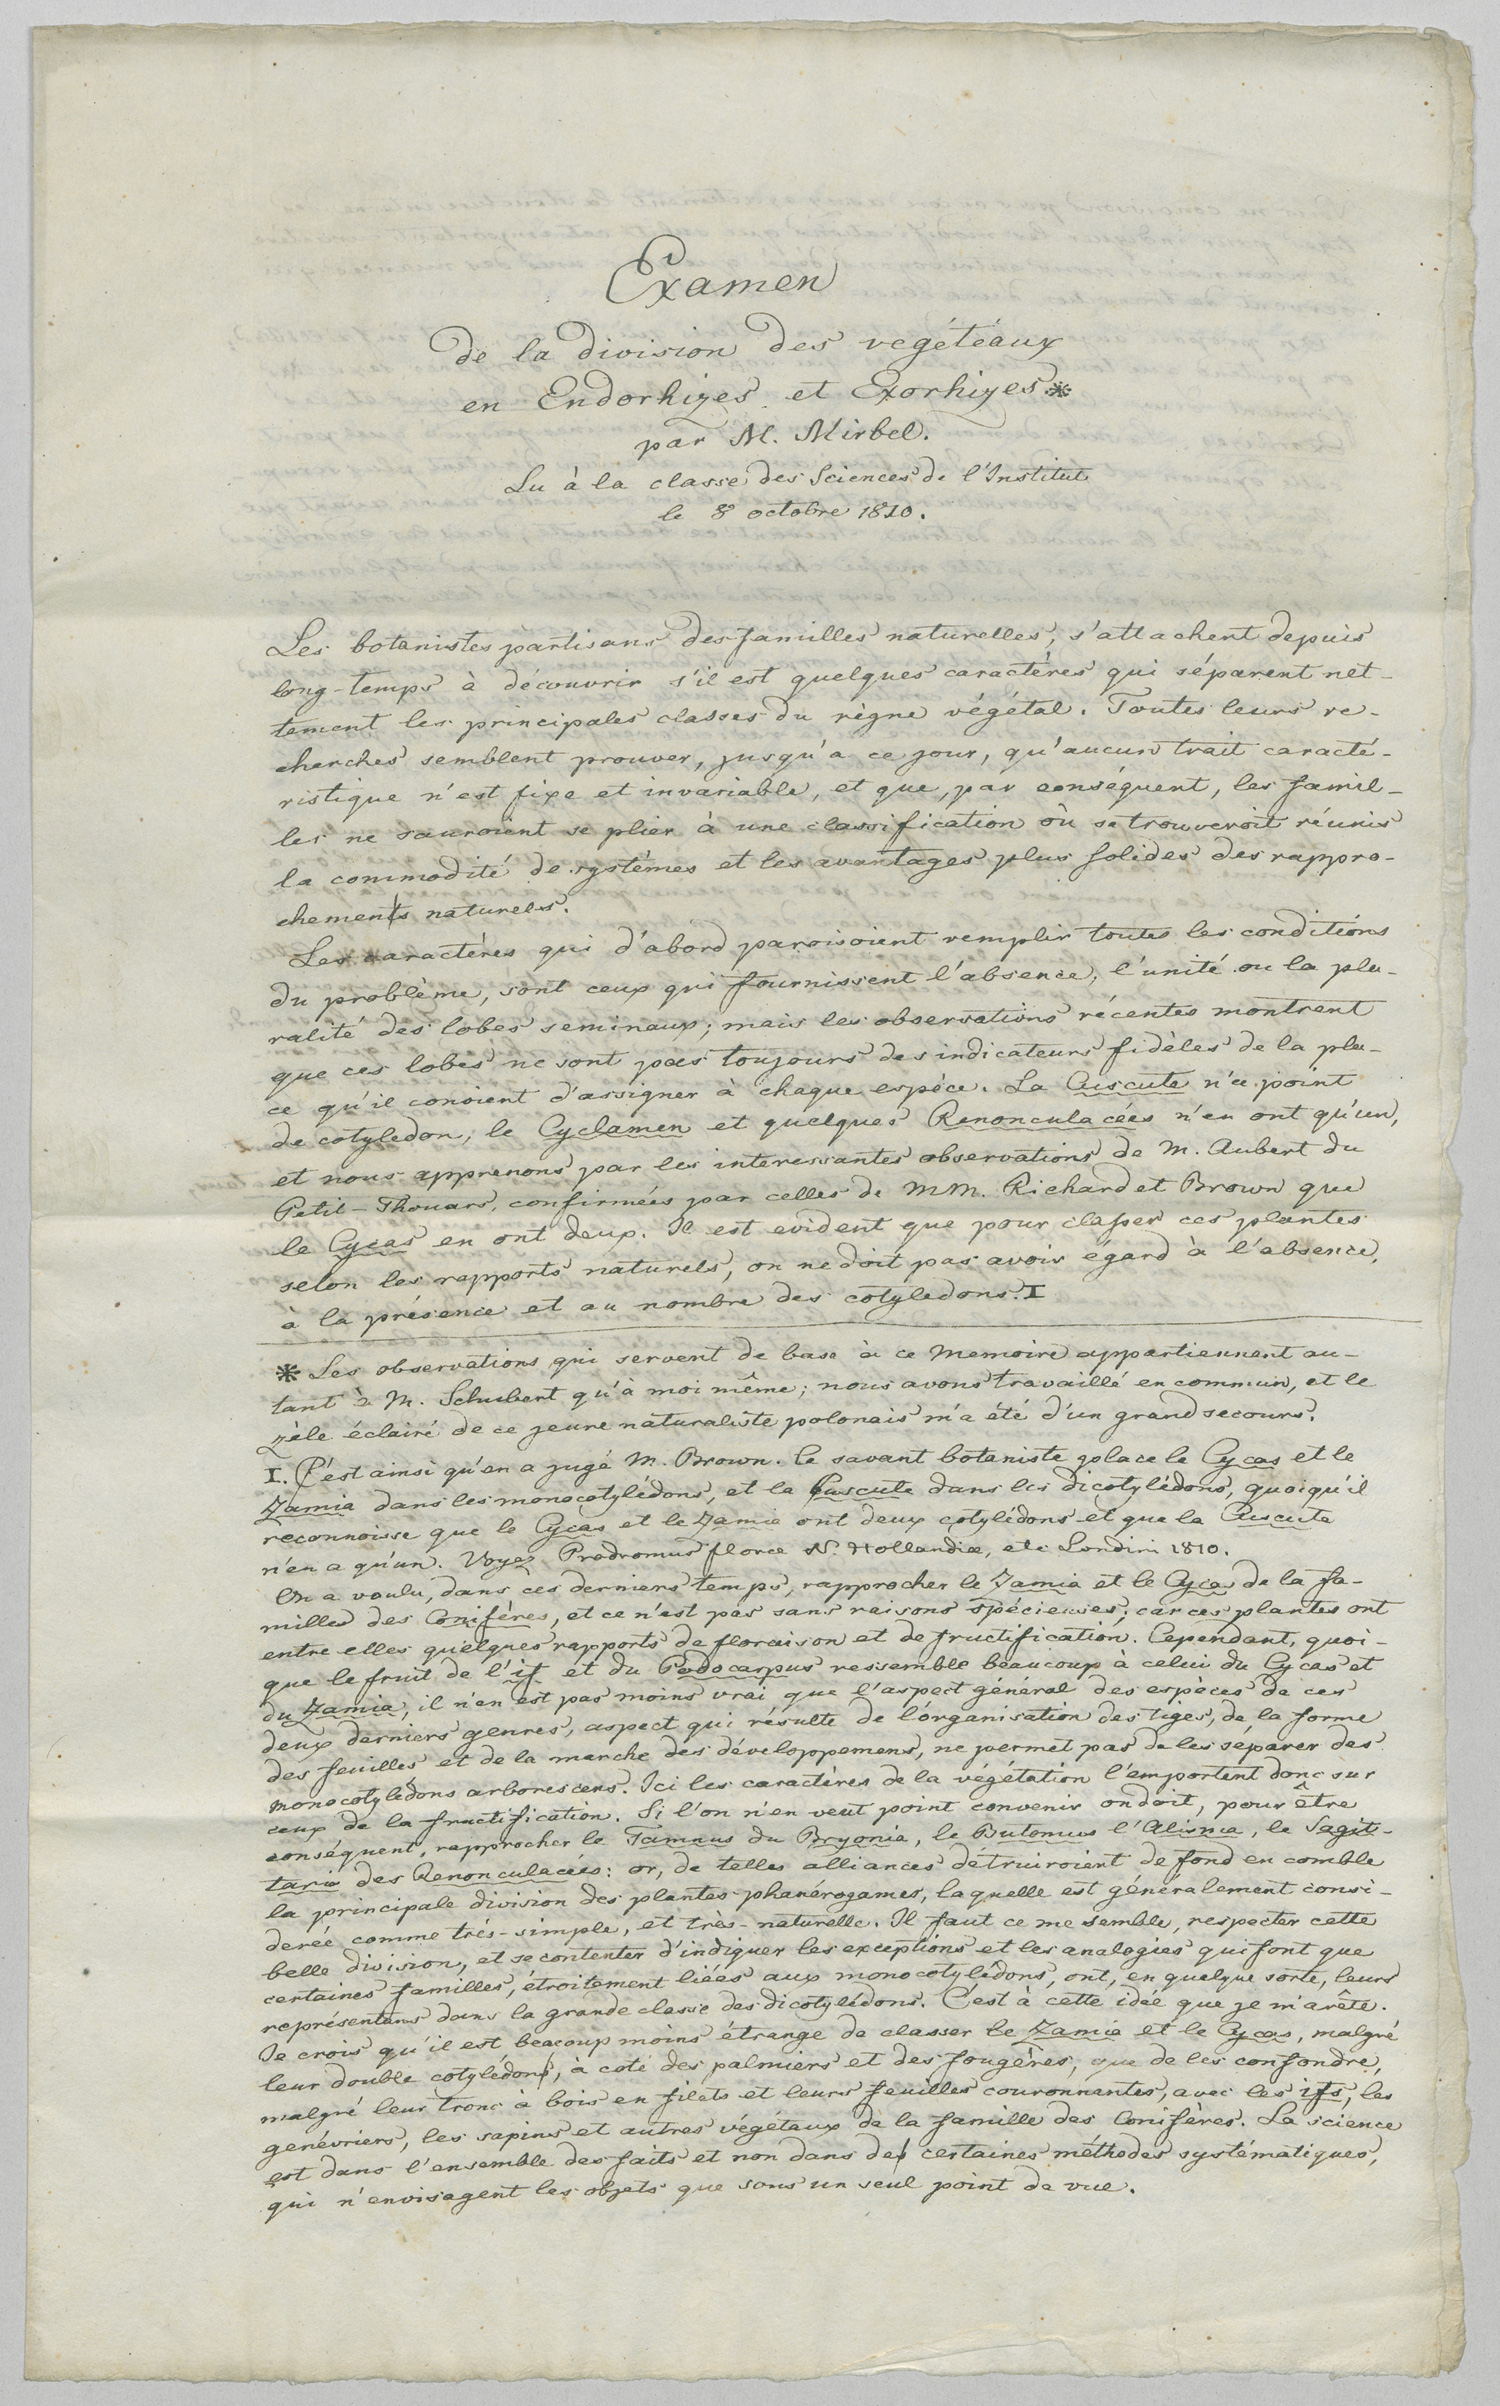 Examen
de la division des vegétéaux
en Endorhizes et Exorhizes *
par M. Mirbel.
Lu à la classe des Sciences de l'Institut
le 8 octobre 1810.
Les botanistes partisans des familles naturelles, s'attachent depuis
long-temps à découvrir s'il est quelques caractères qui séparent net-
tement les principales classes du règne végétal. Toutes leurs re-
cherches semblent prouver, jusqu'a ce jour, qu'aucun trait caracté-
ristique n'est fixe et invariable, et que, par conséquent, les famil-
les ne sauroient se plier à une classification où se trouveroit réunis
la commodité de systèmes et les avantages plus solides des rappro-
chements naturels.
Les caractères qui d'abord paroisoient remplir toutes les conditions
du problème, sont ceux qui fournissent l'absence, l'unité ou la plu-
ralité des lobes seminaux; mais les observations récentes montrent
que ces lobes ne sont pas toujours des indicateurs fidèles de la pla-
ce qu'il convient d'assigner à chaque espèce. La Cuscute n'a point
de cotyledon, le Cyclamen et quelques Renonculacées n'en ont qu'un,
et nous apprenons par les interessantes observations de M. Aubert du
Petit-Thouars, confirmées par celles de MM. Richard et Brown que
le Cycas en ont deux. Il est evident que pour classer ces plantes
selon les rapports naturels, on ne doit pas avoir égard à l'absence,
à la présence et au nombre des cotyledons. I
* Les observations qui servent de base à ce Memoire appartiennent au-
tant à M. Schubert qu'à moi même; nous avons travaillé en commun, et le
zèle éclairé de ce jeune naturaliste polonais m'a été d'un grand secours.
I. C'est ainsi qu'en a jugé M. Brown. Ce savant botaniste place le Cycas et le
Zamia dans les monocotylédons, et la Cuscute dans les dicotylédons, quoiqu'il
reconnoisse que le Cycas et le Zamia ont deux cotylédons et que la Cuscute
n'en a qu'un. Voyez Prodromus florae N. Hollandiæ, etc Londini 1810.
On a voulu, dans ces derniers temps, rapprocher le Zamia et le Cycas de la fa-
mille des Conifères, et ce n'est pas sans raisons spécieuses; car ces plantes ont
entre elles quelques rapports de floraison et de fructification. Cependant, quoi-
que le fruit de l'if et du Podocarpus ressemble beaucoup à celui du Cycas et
du Zamia, il n'en est pas moins vrai que l'aspect général des espèces de ces
deux derniers genres, aspect qui résulte de l'organisation des tiges, de la forme
des feuilles et de la marche des développemens, ne permet pas de les séparer des
monocotyledons arborescens. Ici les caractères de la végétation l'emportent donc sur
ceux de la fructification. Si l'on n'en veut point convenir on doit, pour être
conséquent, rapprocher le Tamnus du Bryonia, le Butomus l'Alisma, le Sagit-
taria des Renonculacées: or, de telles alliances détruiroient de fond en comble
la principale division des plantes phanérogames, laquelle est généralement consi-
derée comme très-simple, et très-naturelle. Il faut ce me semble, respecter cette
belle division, et se contenter d'indiquer les exceptions et les analogies qui font que
certaines familles, étroitement liées aux monocotylédons, ont, en quelque sorte, leurs
représentans dans la grande classe des dicotylédons. C'est à cette idée que je m'arête.
Je crois qu'il est beacoup moins étrange de classer le Zamia et le Cycas, malgré
leur double cotylédon, à coté des palmiers et des fougères, que de les confondre,
malgré leur tronc à bois en filets et leurs feuilles couronnantes, avec les ifs, les
genévriers, les sapins et autres végétaux de la famille des Conifères. La science
est dans l'ensemble des faits et non dans de certaines méthodes systématiques,
qui n'envisagent les objets que sous un seul point de vue.